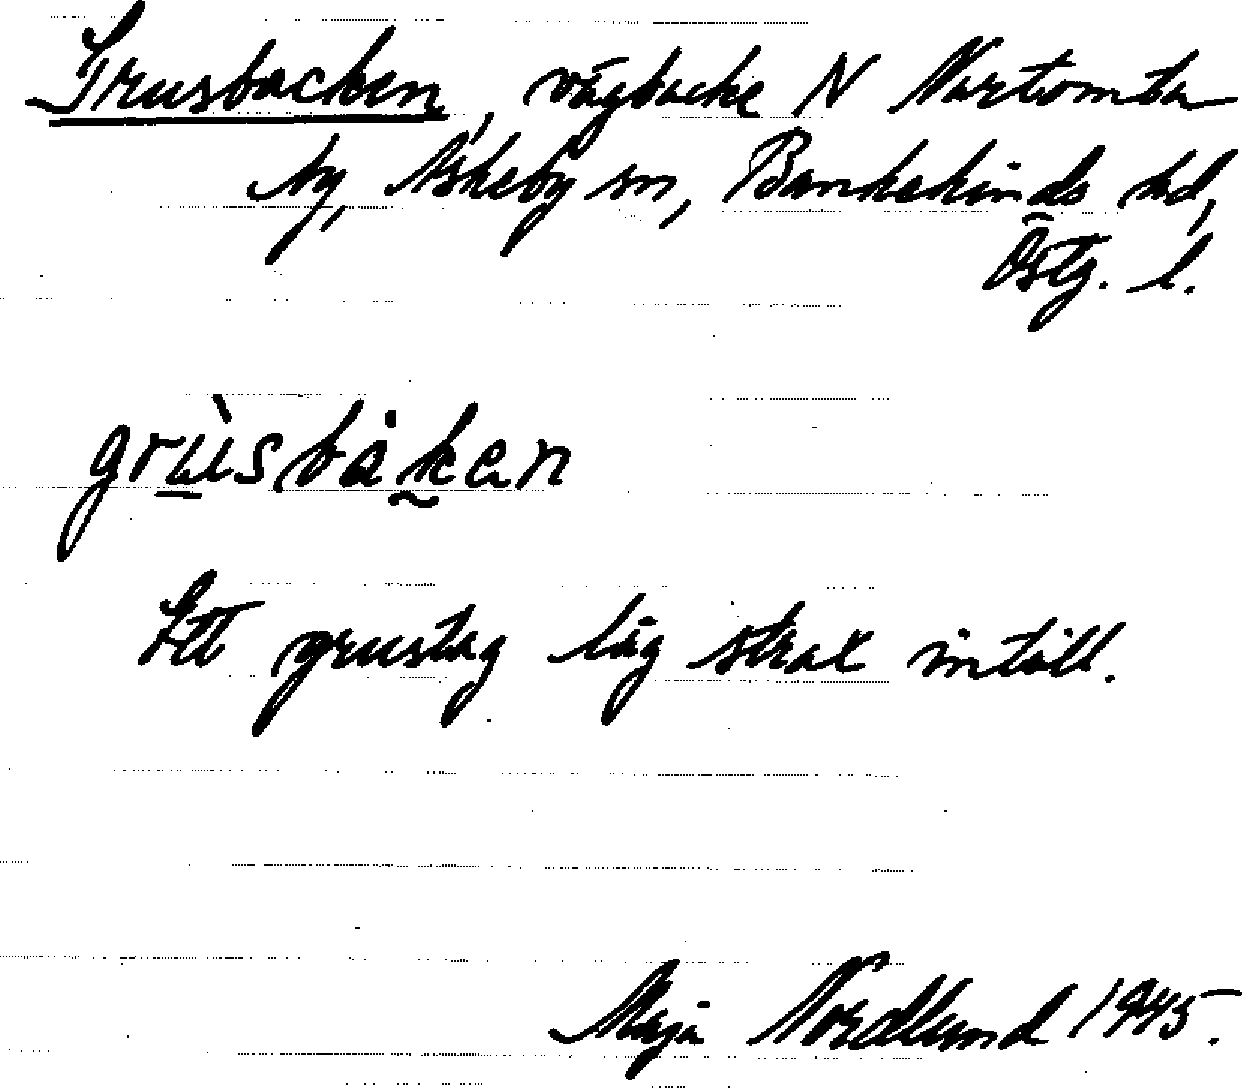 Grusbacken, vägbacke N Nartomta
by, Askeby sn, Bankekinds hd,
Östg. l.
grùsbàken
Ett grustag låg strax intill.
Maja Nordlund 1945.